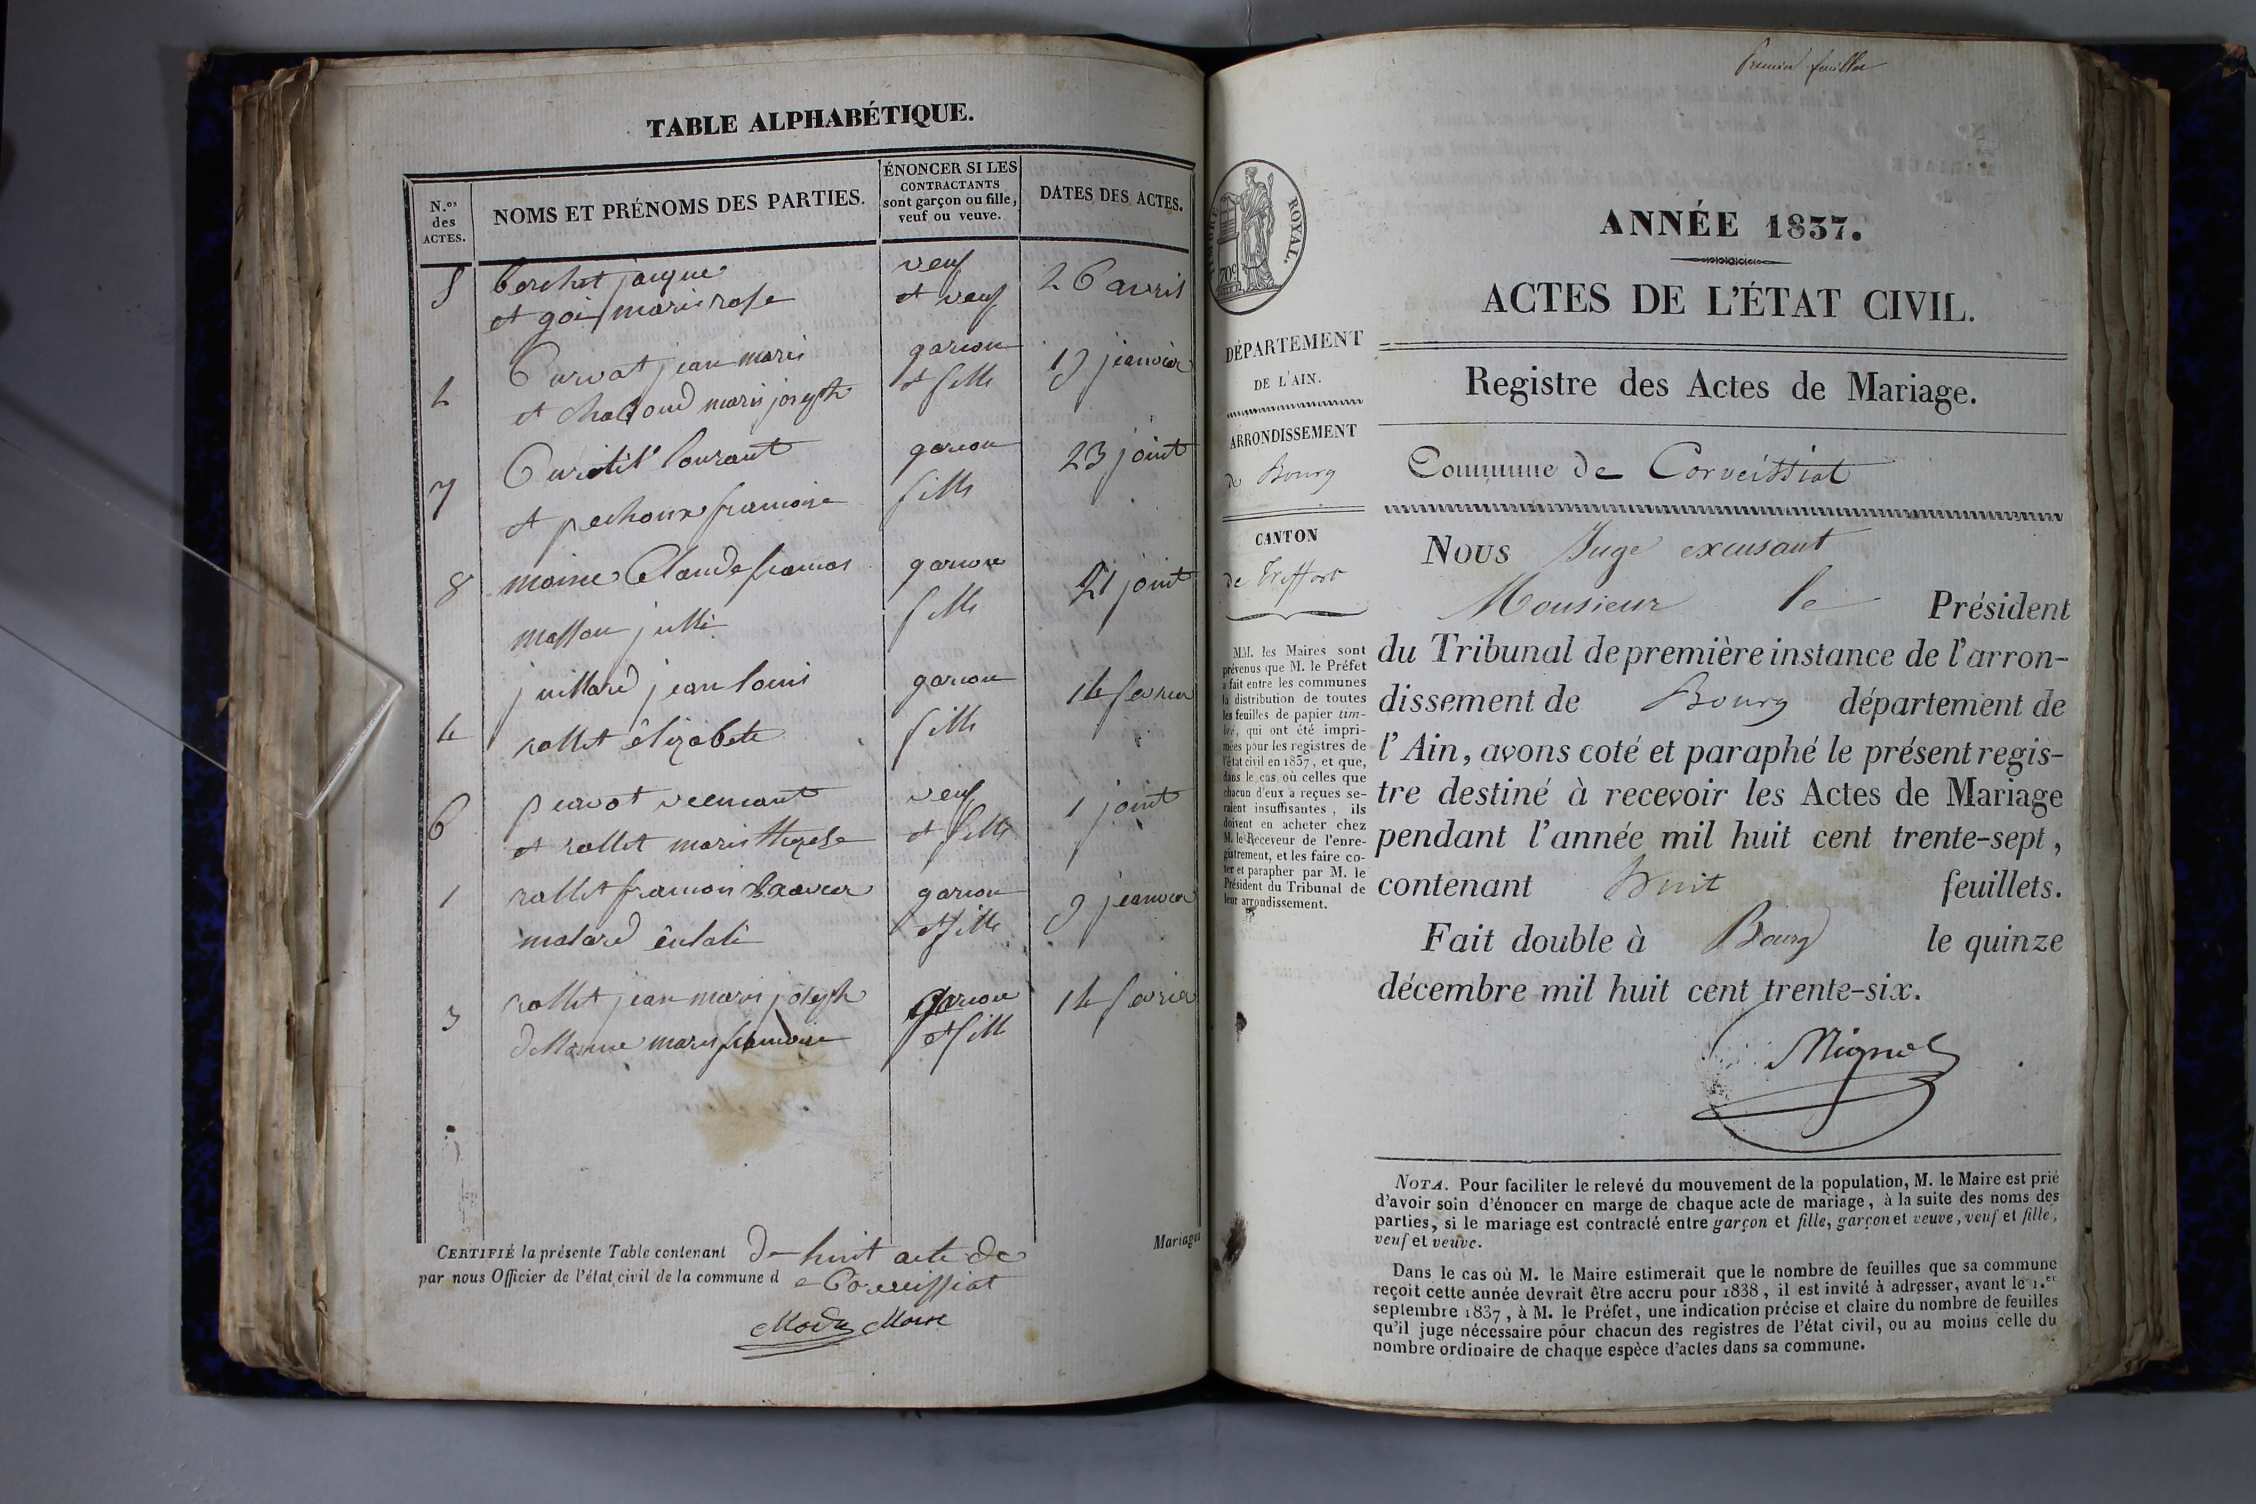 TABLE ALPHABÉTIQUE.
N.os des ACTES.
NOMS ET PRÉNOMS DES PARTIES.
ÉNONCER SI LES
CONTRACTANTS
sont garçon ou fille,
veuf ou veuve.
DATES DES ACTES.
5 berchet jaque veuf 26 avril
et goi marie rose et veuf
2 Curvat jean marie garcon 19 jeanvier
et chaboud marie joseph et fille
7 Curtil lourant garcon 23 joint
et pechoux framoise fille
8 moine Claude framos garcon 21 joint
masson jullie fille
4 juillard jean louis garcon 14 fevrier
rollet élizabete fille
6 pervot veencant veuf 1 joint
et rollet marie therese et fille
1 rollet framois garcon 9 jeanvier
malard éulali et fille
3 rollet jean marie joseph garcon 14 fevrier
marie framoise et fille
CERTIFIÉ la présente Table contenant de huit acte de Mariages
par nous Officier de l'état civil de la commune d e Corveissiat
Premier feuillet
TIMBRE ROYAL.
70c
ANNÉE 1837.
ACTES DE L'ÉTAT CIVIL.
DÉPARTEMENT
DE L'AIN.
ARRONDISSEMENT
de Bourg
CANTON
de Treffort
MM. les Maires sont
prévenus que M. le Préfet
a fait entre les communes
la distribution de toutes
les feuilles de papier tim-
bré, qui ont été impri-
mées pour les registres de
l'état civil en 1837, et que,
dans le cas où celles que
chacun d'eux a reçues se-
raient insuffisantes, ils
doivent en acheter chez
M. le Receveur de l'enre-
gistrement, et les faire co-
ter et parapher par M. le
Président du Tribunal de
leur arrondissement.
Registre des Actes de Mariage.
Commune de Corveissiat
Nous Juge excusant
Monsieur le Président
du Tribunal de première instance de l'arron-
dissement de Bourg département de
l'Ain, avons coté et paraphé le présent regis-
tre destiné à recevoir les Actes de Mariage
pendant l'année mil huit cent trente-sept,
contenant huit feuillets.
Fait double à Bourg le quinze
décembre mil huit cent trente-six.
NOTA. Pour faciliter le relevé du mouvement de la population, M. le Maire est prié
d'avoir soin d'énoncer en marge de chaque acte de mariage, à la suite des noms des
parties, si le mariage est contracté entre garçon et fille, garçon et veuve, veuf et fille,
veuf et veuve.
Dans le cas où M. le Maire estimerait que le nombre de feuilles que sa commune
reçoit cette année devrait être accru pour 1838, il est invité à adresser, avant le 1.er
septembre 1837, à M. le Préfet, une indication précise et claire du nombre de feuilles
qu'il juge nécessaire pour chacun des registres de l'état civil, ou au moins celle du
nombre ordinaire de chaque espèce d'actes dans sa commune.